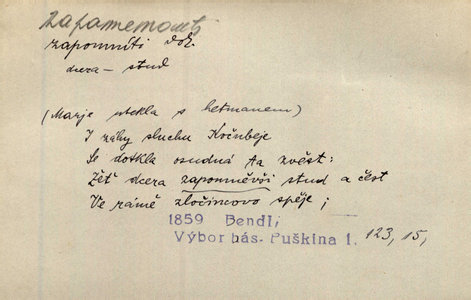 zapamenouti
zapomníti dok.
dcera – stud
(Marje utekla s hetmanem)
I záhy sluchu Kočubeje
Se dotkla osudná ta zvěst:
Žeť dcera zapomněvši stud a čest
Ve rámě zločincovo spěje;
1859 Bendl,
Výbor bás. Puškina 1. 123, 15,